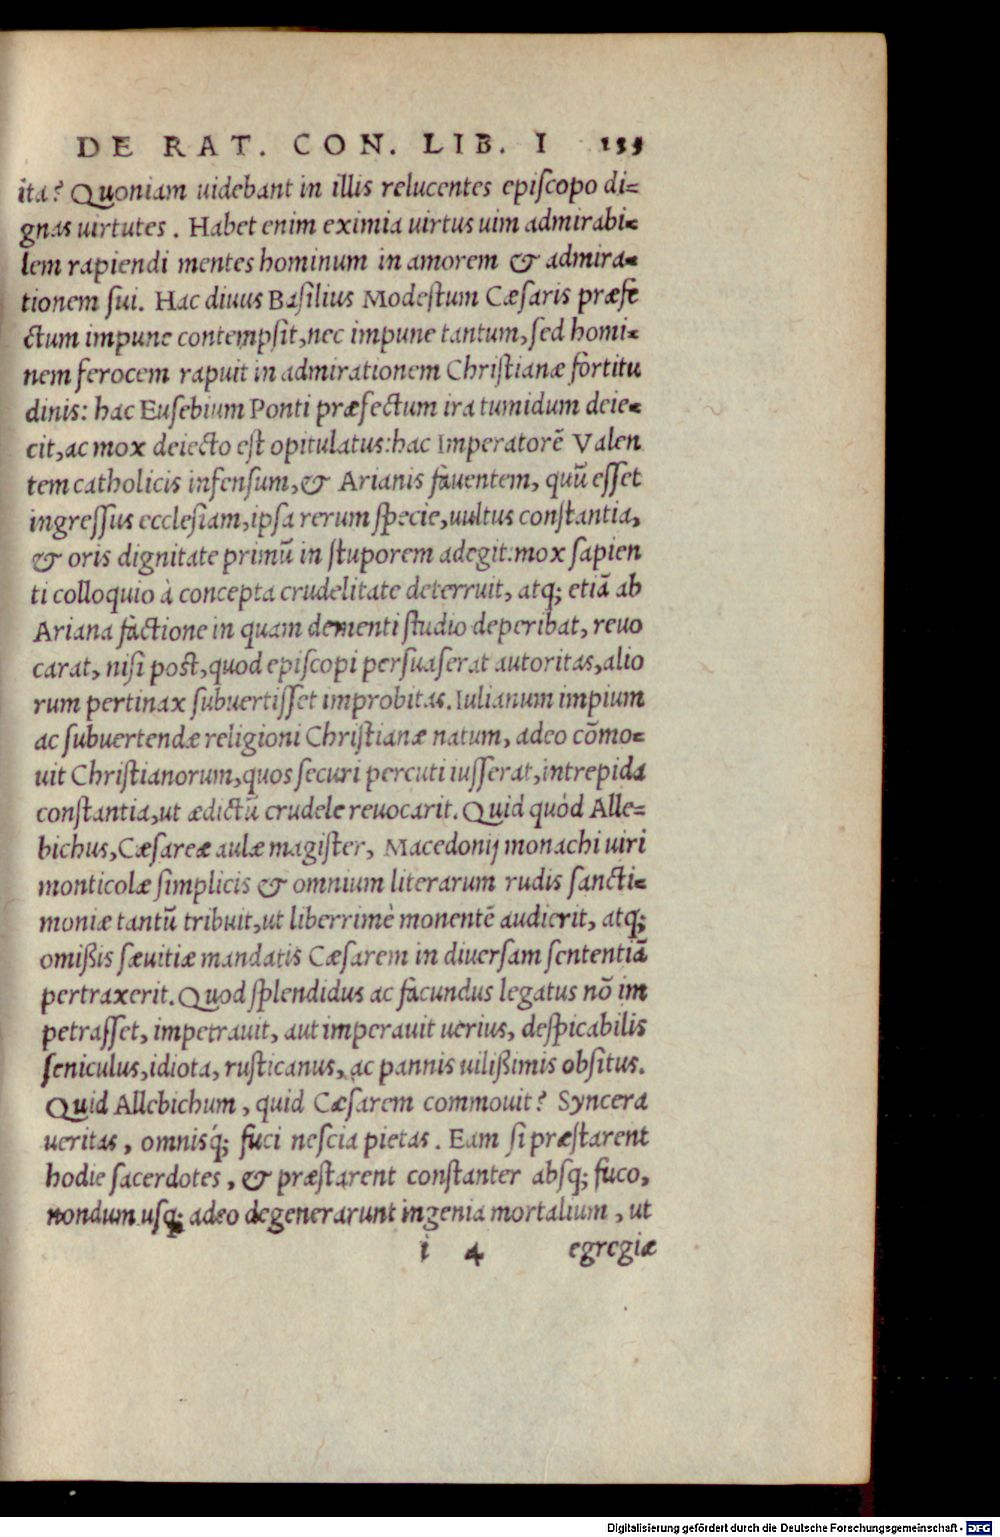 DE RAT. CON. LIB. I 135
ita? Quoniam uidebant in illis relucentes episcopo di=
gnas uirtutes. Habet enim eximia uirtus uim admirabi=
lem rapiendi mentes hominum in amorem & admira=
tionem sui. Hac diuus Basilius Modestum Cæsaris præfe
ctum impune contempsit, nec impune tantum, sed homi=
nem ferocem rapuit in admirationem Christianæ fortitu
dinis: hac Eusebium Ponti præfectum ira tumidum deie=
cit, ac mox deiecto est opitulatus: hac Imperatorē Valen
tem catholicis infensum, & Arianis fauentem, quū esset
ingressus ecclesiam, ipsa rerum specie, uultus constantia,
& oris dignitate primū in stuporem adegit: mox sapien
ti colloquio à concepta crudelitate deterruit, atq; etiā ab
Ariana factione in quam dementi studio deperibat, reuo
carat, nisi post, quod episcopi persuaserat autoritas, alio
rum pertinax subuertisset improbitas. Iulianum impium
ac subuertendæ religioni Christianæ natum, adeo cōmo=
uit Christianorum, quos securi percuti iusserat, intrepida
constantia, ut ædictū crudele reuocarit. Quid quòd Alle=
bichus, Cæsareæ aulæ magister, Macedonij monachi uiri
monticolæ simplicis & omnium literarum rudis sancti=
moniæ tantū tribuit, ut liberrimè monentē audierit, atq;
omißis sæuitiæ mandatis Cæsarem in diuersam sententiā
pertraxerit. Quod splendidus ac facundus legatus nō im
petrasset, impetrauit, aut imperauit uerius, despicabilis
seniculus, idiota, rusticanus, ac pannis uilißimis obsitus.
Quid Allebichum, quid Cæsarem commouit? Syncera
ueritas, omnisq́; fuci nescia pietas. Eam si præstarent
hodie sacerdotes, & præstarent constanter absq; fuco,
nondum usq; adeo degenerarunt ingenia mortalium, ut
i 4 egregiæ
Digitalisierung gefördert durch die Deutsche Forschungsgemeinschaft - DFG